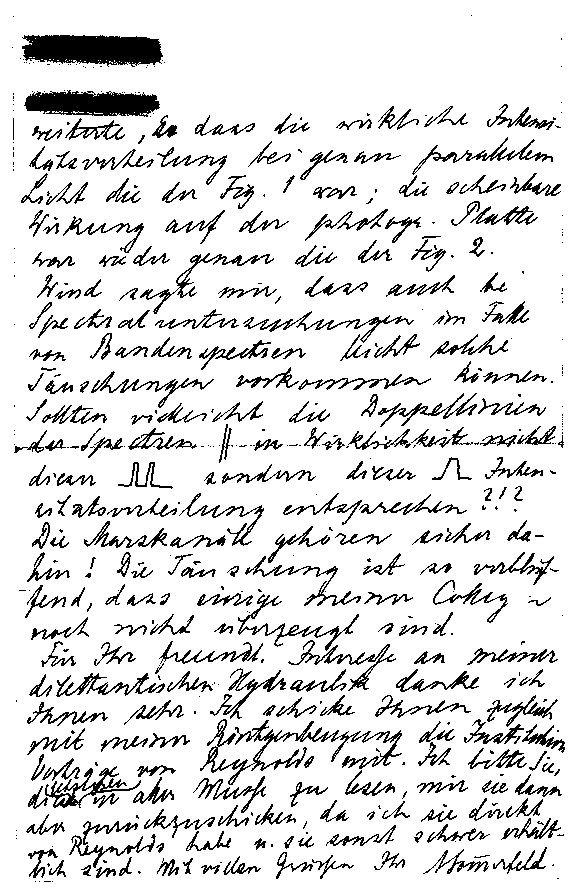 weiterte, so dass die wirkliche Intensi-
tätsverteilung bei genau parallelem
Licht die der Fig. 1 war; die scheinbare
Wirkung auf der photogr. Platte
war wieder genau die der Fig. 2.
Wind sagte mir, dass auch bei
Spectraluntersuchungen im Falle
von Bandenspectren leicht solche
Täuschungen vorkommen können.
Sollten vielleicht die Doppellinien
der Spectren || in Wirklichkeit nicht
dieser sondern dieser Inten-
sitätsverteilung entsprechen ?!?
Die Marskanäle gehören sicher da-
hin! Die Täuschung ist so verblüf-
fend, dass einige meiner Colleg
noch nicht überzeugt sind.
Für Ihr freundl. Interesse an meiner
dilettantischen Hydraulik danke ich
Ihnen sehr. Ich schicke Ihnen zugleich
mit meiner Röntgenbeugung die Institution
Vorträge von Reynolds mit. Ich bitte Sie,
letzteren
in aller Musse zu lesen, mir sie dann
aber zurückzuschicken, da ich sie direkt
von Reynolds habe u. sie sonst schwer erhält-
lich sind. Mit vielen Grüssen Ihr ASommerfeld.